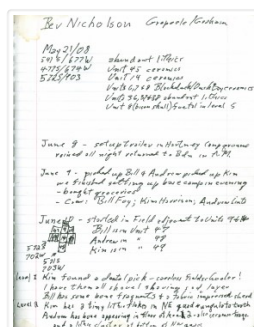 Bev Nicholson Gropeele/Gresham
May 21/08
541 S/677W abundant lithics
477 S/674W Unit 45 ceramics
572 S/703 Unit 14 ceramics
Units 6,7 & 8 Blackduck/Duck Bay ceramics
Units 36,37 & 38 abundant lithics
Unit 8 (burn shell) Swtfs in level 5
June 8 - set up trailer in Hartney campground
rained all night returned to Bdn in P.M.
June 9 - picked up Bill & Andrew picked up Kim
we finished setting up base camp in evening
- bought groceries
- Crew: Bill Fay, Kim Harrison, Andrew Lints
June - started in Field adjacent to Units 7&8
Bill in Unit 47
Andrew in " 48
Kim in " 49
572 S
702 W
573 S
703 W
Level 2 Kim found a dental pick - careless Fieldschooler!
I have them all shovel shaving sod layer
Bill has some bone fragments & a fabric impressed sherd
Level 3 Kim has a tiny lithic flakes in NE quad & ungulate tooth